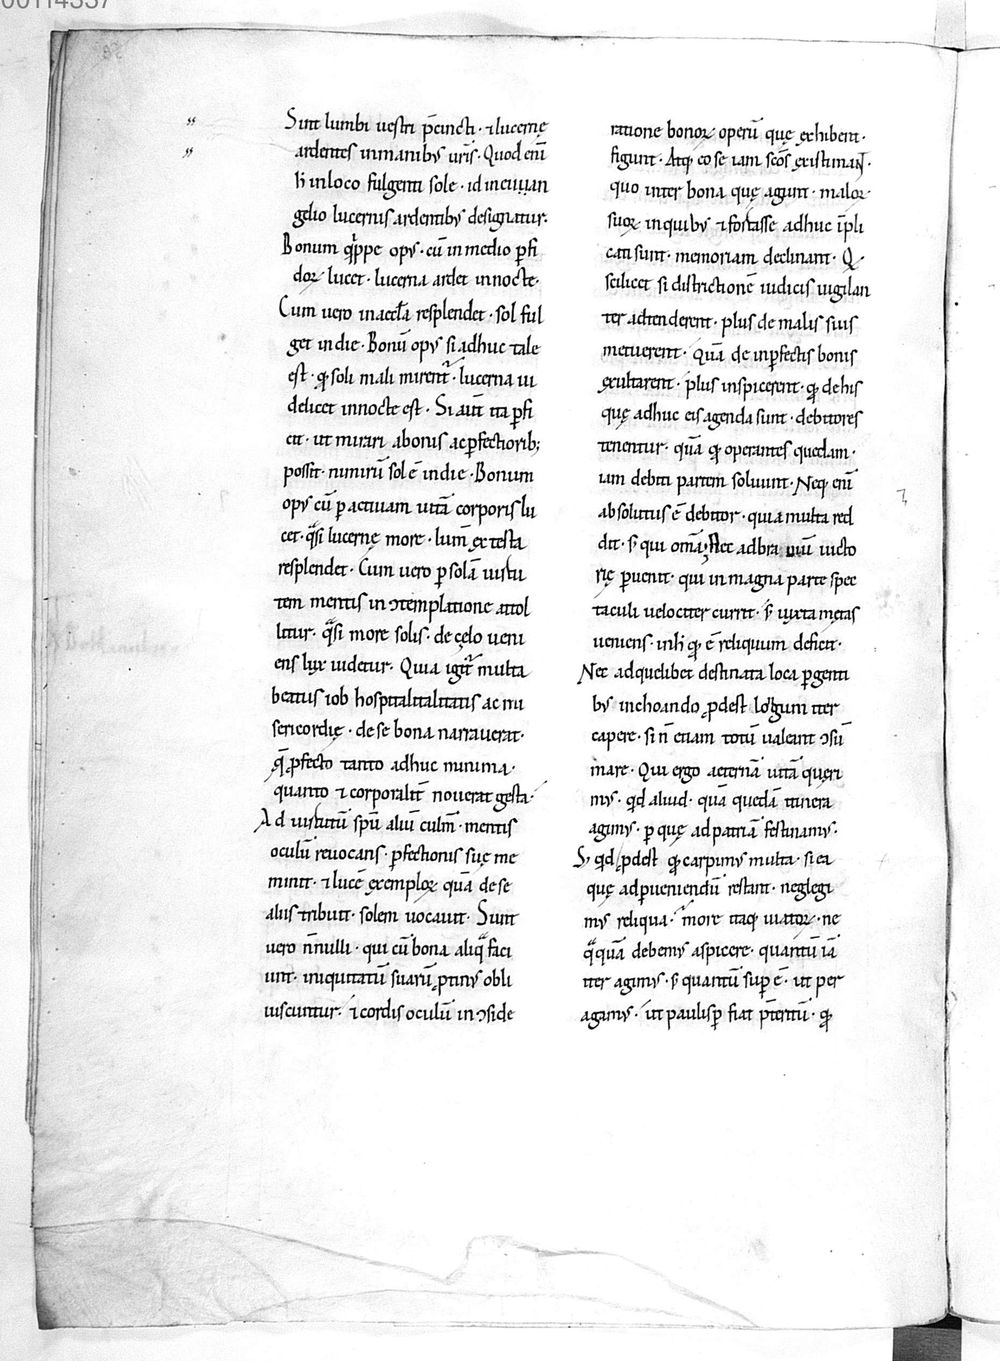 Sint lumbi uestri p̄cincti · ⁊ lucernę
ardentes inmanibꝰ ur̄is · Quod eni̅
h̄ inloco fulgenti sole · id in euuan
gelio lucernis ardentibꝰ designatur·
Bonum qͥppe opꝰ · cu̅ in medio ꝑfi
doꝝ lucet · lucerna ardet innocte·
Cum uero in aeccƚa resplendet · sol ful
get in die · Bonu̅ opꝰ si adhuc tale
est · qđ soli mali mirent᷑ · lucerna ui
delicet innocte est · Si aut̅ ita ꝑfi
cit · ut mirari abonis ac ꝑfectiorib;
possit · nimiru̅ sol e̅ in die · Bonum
opꝰ cu̅ ꝑ actiuam uita̅ corporis lu
cet · qͣsi lucernę more · lum̅ ex testa
resplendet · Cum uero ꝑ sola̅ uirtu
tem mentis in ↄtemplatione attol
litur · qͣsi more solis · de cęlo ueni
ens lux uidetur · Quia igit᷑ multa
beatus iob hospitalitalitatis ac mi
sericordię · de se bona narrauerat·
q̨̄ ꝓfecto tanto adhuc minima ·
quanto ⁊ corporalit᷑ nouerat gesta·
Ad uirtutu̅ spu̅ aliu̅ culm̅ · mentis
oculu̅ reuocans · ꝑfectionis suę me
minit · ⁊ luce̅ exemploꝝ qua̅ de se
aliis tribuit · solem uocauit · Sunt
uero n̄nulli · qui cu̅ bona aliqͣ faci
unt · iniquitatu̅ suaru̅ ꝓtinꝰ obli
uiscuntur · ⁊ cordis oculu̅ in ↄside
ratione bonoꝝ operu̅ quę exhibent·
figunt · Atq; eo se iam sc̅os existimant·
quo inter bona quę agunt · maloꝝ
suoꝝ in quibꝰ ⁊ fortasse adhuc i̅pli
cati sunt · memoriam declinant · Q·
scilicet si districtione̅ iudicis uigilan
ter adtenderent · plus de malis suis
metuerent · qua̅ de inꝑfectis bonis
exultarent · plus inspicerent · qđ de his
quę adhuc eis agenda sunt · debitores
tenentur · qua̅ qđ operantes quedam ·
iam debiti partem soluunt · Neq; eni̅
absolutus e̅ debitor · qui a multa red
dit · s; qui om̅a; Nec ad bra uiu̅ uicto
rię ꝑuenit · qui in magna parte spec
taculi uelociter currit · s; iuxta metas
ueniens · in h̄ qđ e̅ reliquum deficit ·
Nec ad quelibet destinata loca ꝑgenti
bꝰ inchoando ꝓdest lo̅gum iter
capere · si n̄ etiam totu̅ ualeant ↄsu̅
mare · Qui ergo aeterna̅ uita̅ queri
mꝰ · qͥd aliud · qua̅ queda̅ itinera
agimꝰ · ꝑ quę ad patria̅ festinamꝰ·
S; qͥd ꝓdest qđ carpimꝰ multa · si ea
quę ad ꝑueniendu̅ restant · neglegi
mꝰ reliqua · more itaq; uiatoꝝ · ne
qͣqua̅ debemꝰ aspicere · quantu̅ ia̅
iter agimꝰ · s; quantu̅ suꝑ e̅ · ut per
agamꝰ · ut paulisꝑ fiat p̄teritu̅ · qđ